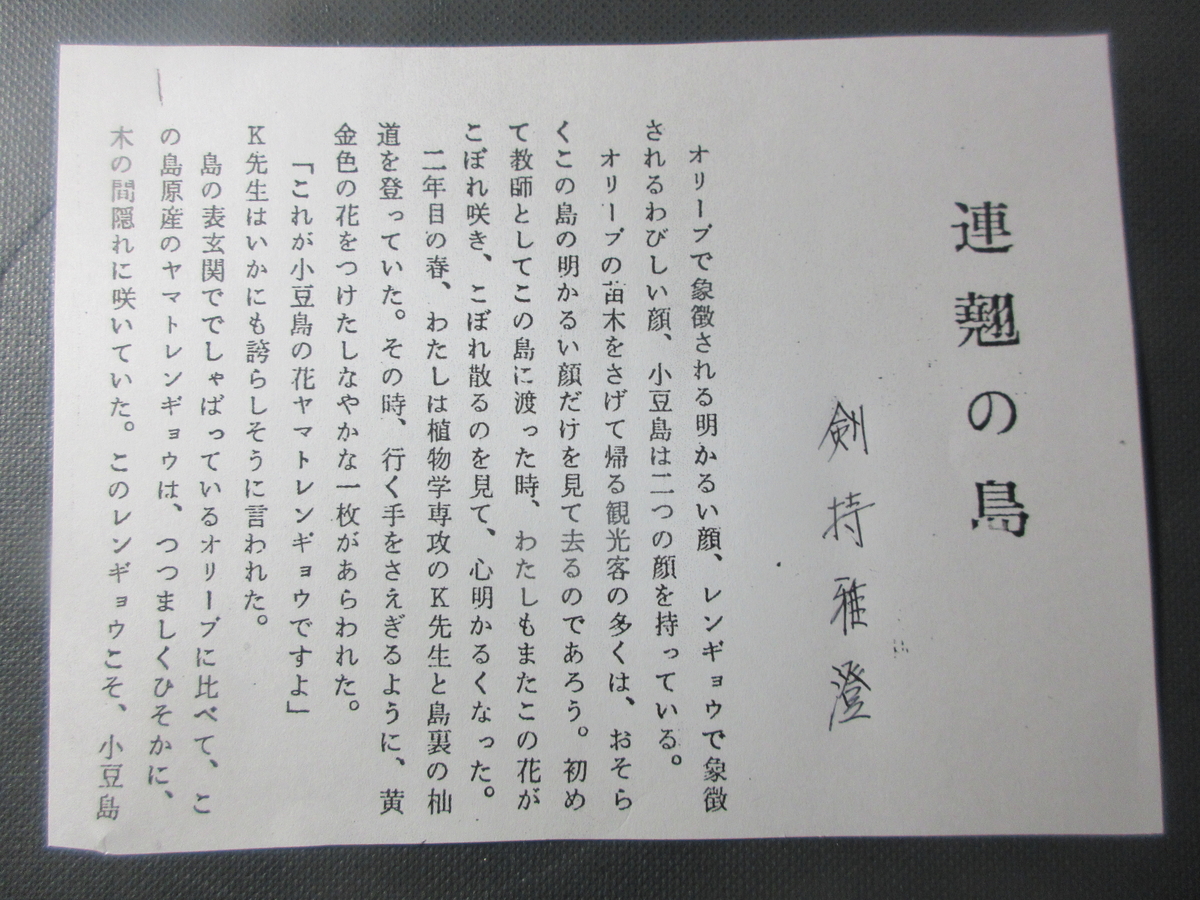 連翹の島
剣持雅澄
オリーブで象徴される明かるい顔、レンギョウで象徴
されるわびしい顔、小豆島は二つの顔を持っている。
オリーブの苗木をさげて帰る観光客の多くは、おそら
くこの島の明かるい顔だけを見て去るのであろう。初め
て教師としてこの島に渡った時、わたしもまたこの花が
こぼれ咲き、こぼれ散るのを見て、心明かるくなった。
二年目の春、わたしは植物学専攻のK先生と島裏の杣
道を登っていた。その時、行く手をさえぎるように、黄
金色の花をつけたしなやかな一枚があらわれた。
「これが小豆島の花ヤマトレンギョウですよ」
K先生はいかにも誇らしそうに言われた。
島の表玄関ででしゃばっているオリーブに比べて、こ
の島原産のヤマトレンギョウは、つつましくひそかに、
木の間隠れに咲いていた。このレンギョウこそ、小豆島